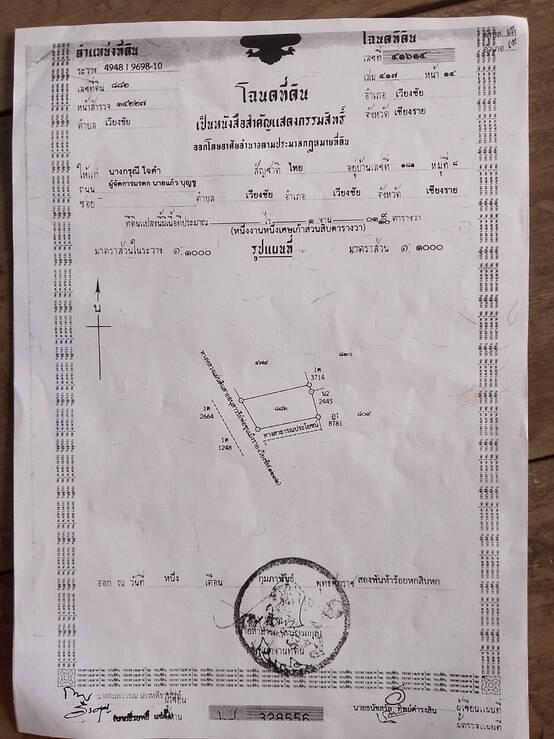 ตำแหน่งที่ดิน
ระวาง 4948 I 9698-10
เลขที่ดิน ๘๘๒
หน้าสำรวจ ๑๔๒๒๗
ตำบล เวียงชัย
โฉนดที่ดิน
เลขที่ ๔๑๖๑๔
เล่ม ๔๑๗ หน้า ๑๔
อำเภอ เวียงชัย
จังหวัด เชียงราย
โฉนดที่ดิน
เป็นหนังสือสำคัญแสดงกรรมสิทธิ์
ออกโดยอาศัยอำนาจตามประมวลกฎหมายที่ดิน
ให้แก่ นางกรุณี ใจคำ สัญชาติ ไทย อยู่บ้านเลขที่ ๑๘๑ หมู่ที่ ๘
ถนน ผู้จัดการมรดก นายแก้ว บุญชู
ซอย ตำบล เวียงชัย อำเภอ เวียงชัย จังหวัด เชียงราย
ที่ดินแปลงนี้มีเนื้อที่ประมาณ ไร่ ๑ งาน ตารางวา
(หนึ่งงานหนึ่งเศษเก้าส่วนสิบตารางวา)
มาตราส่วนในระวาง ๑:๑๐๐๐ รูปแผนที่ มาตราส่วน ๑:๑๐๐๐
น
๔๗๙
๘๑๐
1ต
3714
น2
2445
๘๘๒
8781
๘๐๙
ทางสาธารณประโยชน์
1ต
2664
1ต
1248
ออก ณ วันที่ หนึ่ง เดือน กุมภาพันธ์ พุทธศักราช สองพันห้าร้อยหกสิบหก
ผู้เขียน
นายธนัชสนัย ทิพย์ดำรงสิน ผู้เขียนแผนที่
ผู้ตรวจแผนที่
328556